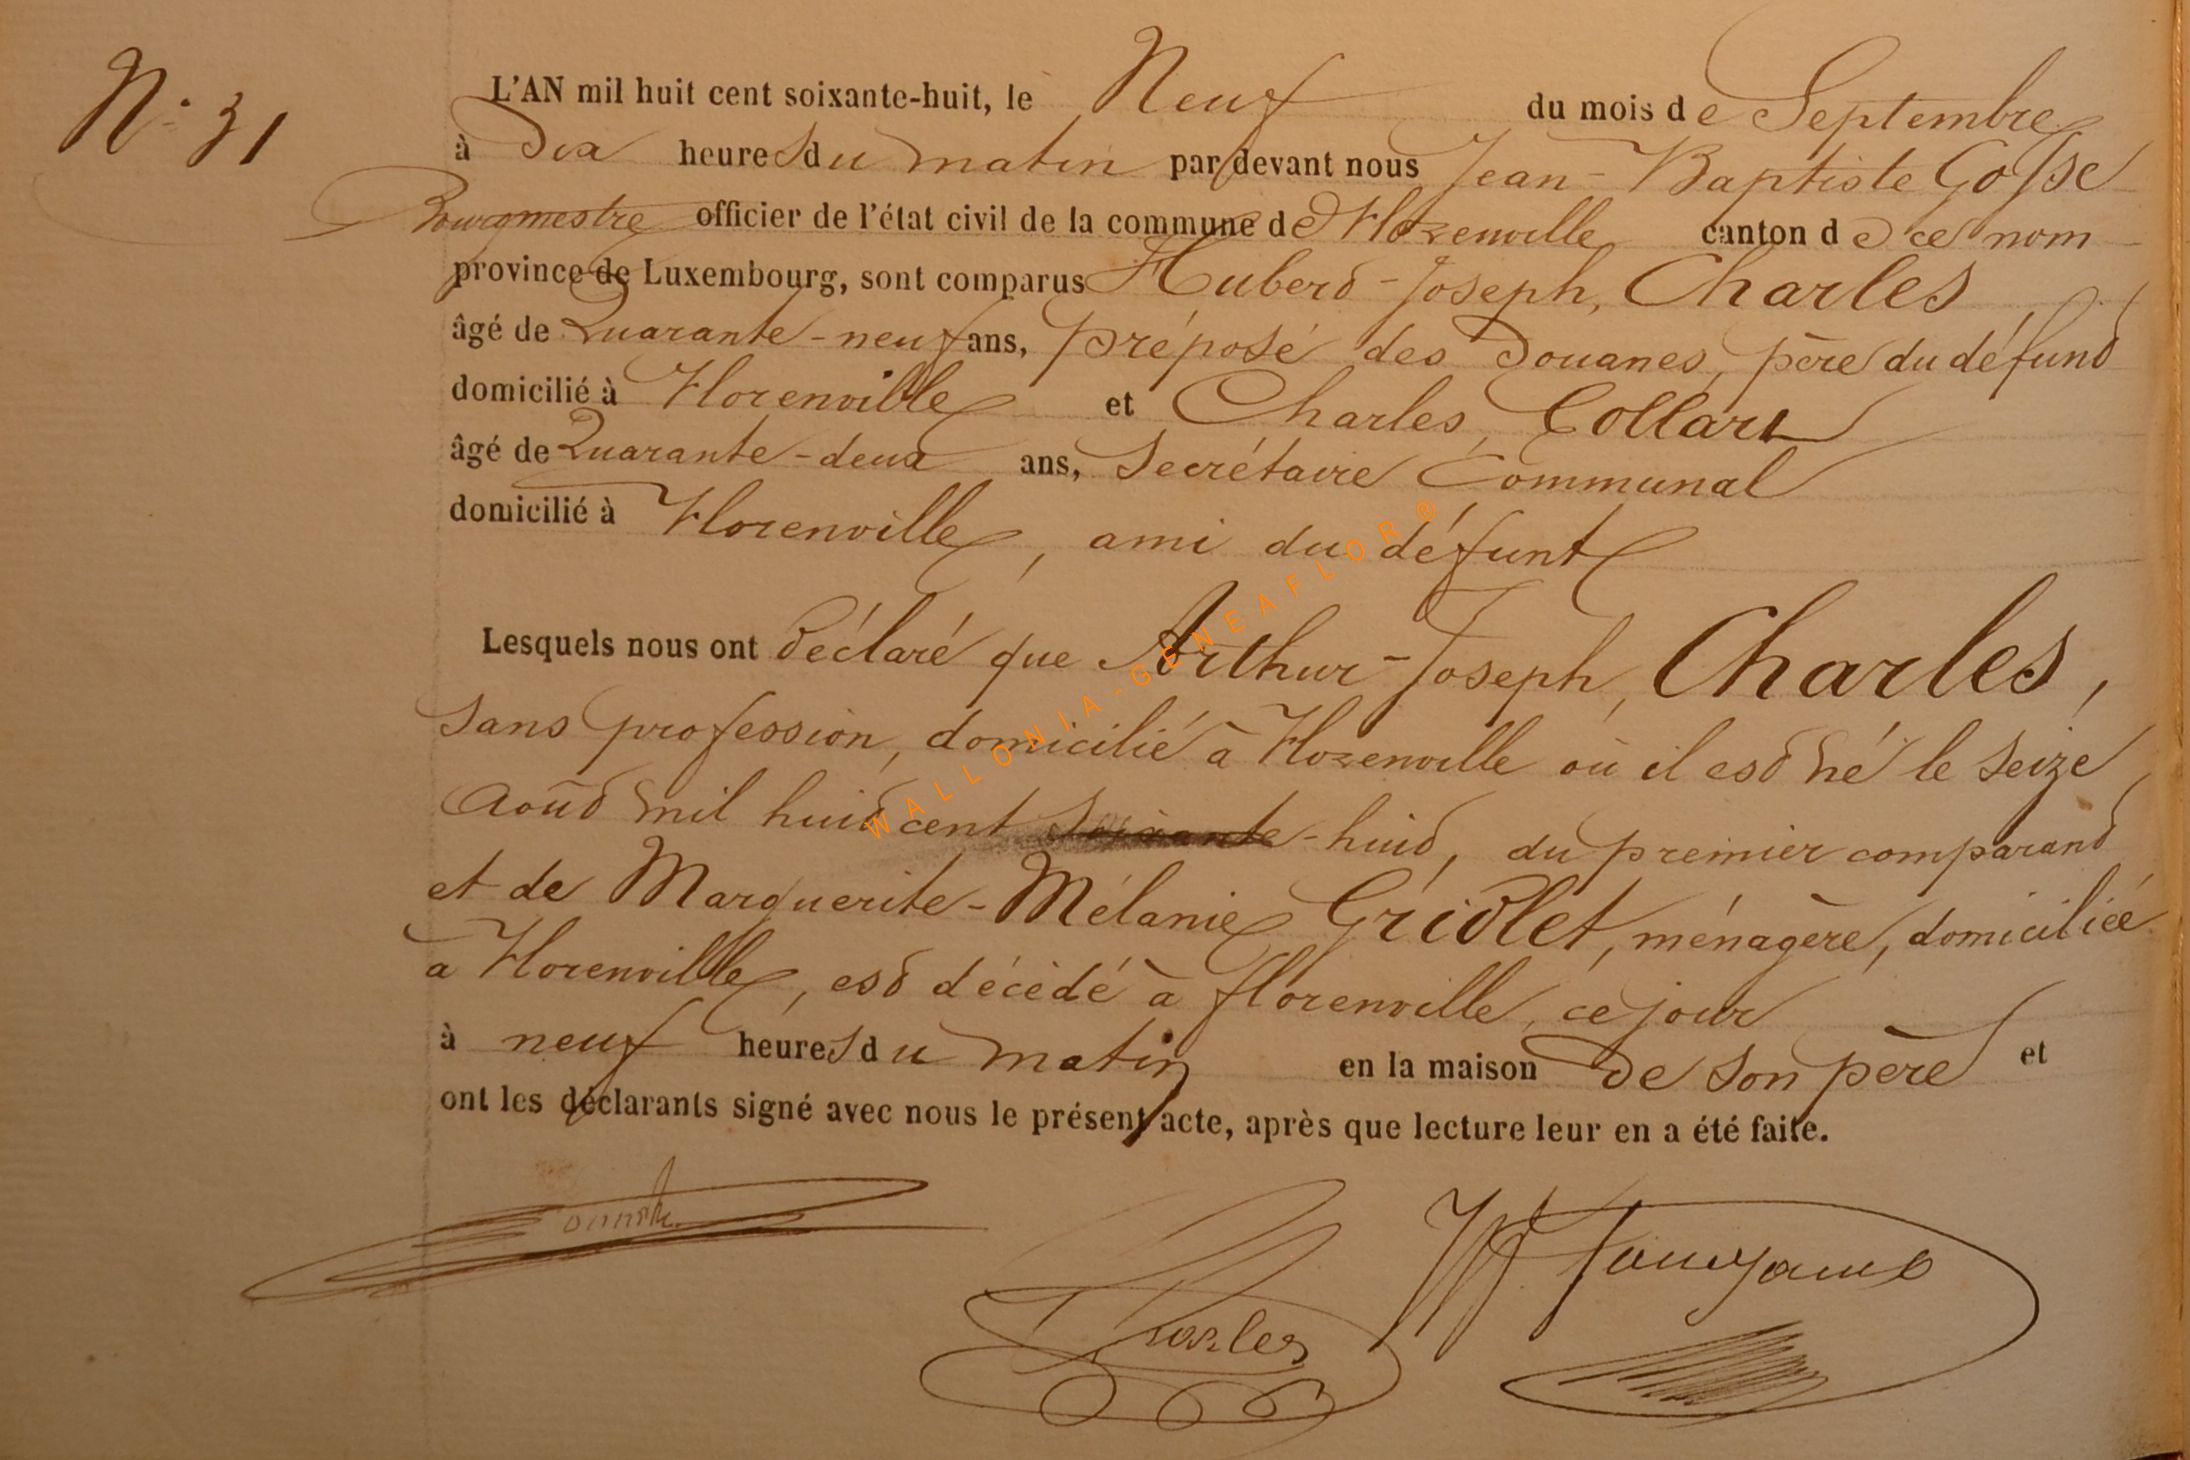 N° 31
L'AN mil huit cent soixante-huit, le Neuf du mois de Septembre
à Dix heures du matin par devant nous Jean-Baptiste Gosse
Bourgmestre officier de l'état civil de la commune de Florenville canton de ce nom
province de Luxembourg, sont comparus Hubert-Joseph, Charles,
âgé de Quarante-neuf ans, préposé des Douanes, père du défunt
domicilié à Florenville et Charles, Collart
âgé de Quarante-deux ans, Secrétaire Communal
domicilié à Florenville, ami du défunt
Lesquels nous ont déclaré que Arthur-Joseph, Charles,
sans profession, domicilié à Florenville où il est né le seize
août mil huit cent soixante-huit, du premier comparant
et de Marguerite-Mélanie Griolet, ménagère, domiciliée
a Florenville, est décédé à florenville, ce jour
à neuf heures du matin en la maison de son père et
ont les déclarants signé avec nous le présent acte, après que lecture leur en a été faite.
Charles
WALLONIA-GENEAFLOR®